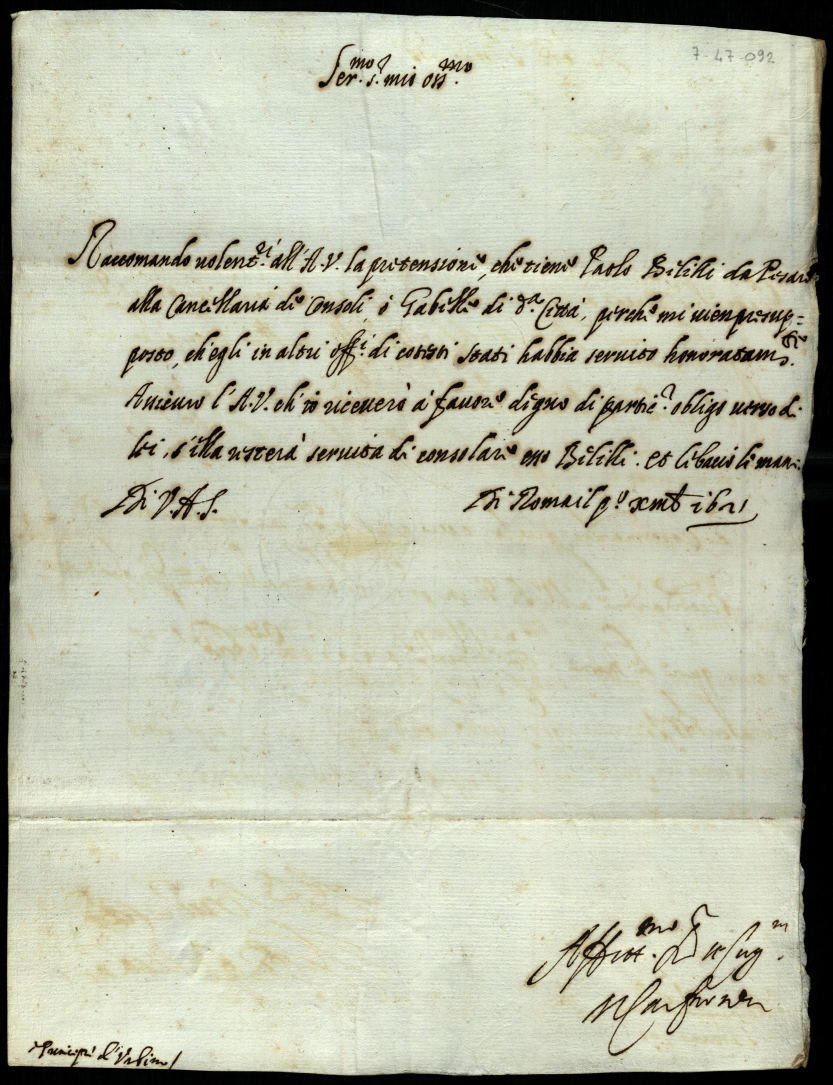 7-47-092
Ser.mo s.r mio oss.mo
Raccomando volent.ri all'A.V. la pretensione, che tiene Paolo Bililli da Pesaro
alla Cancellaria de Consoli, ò Gabelle di d.a Città, perche mi vien presup=
posto, ch'egli in altri off.i di cotesti stati habbia servito honoratam.te
Assicuro l'A.V. ch'io riceverò à favore digno di partic.r obligo verso di
lei, s'ella resterà servita di consolare esso Bililli. et le bacio le mani.
Di V.A.S. Di Roma il p.o xmb 1621
Aff.mo et Cug.
Principe d'Urbino